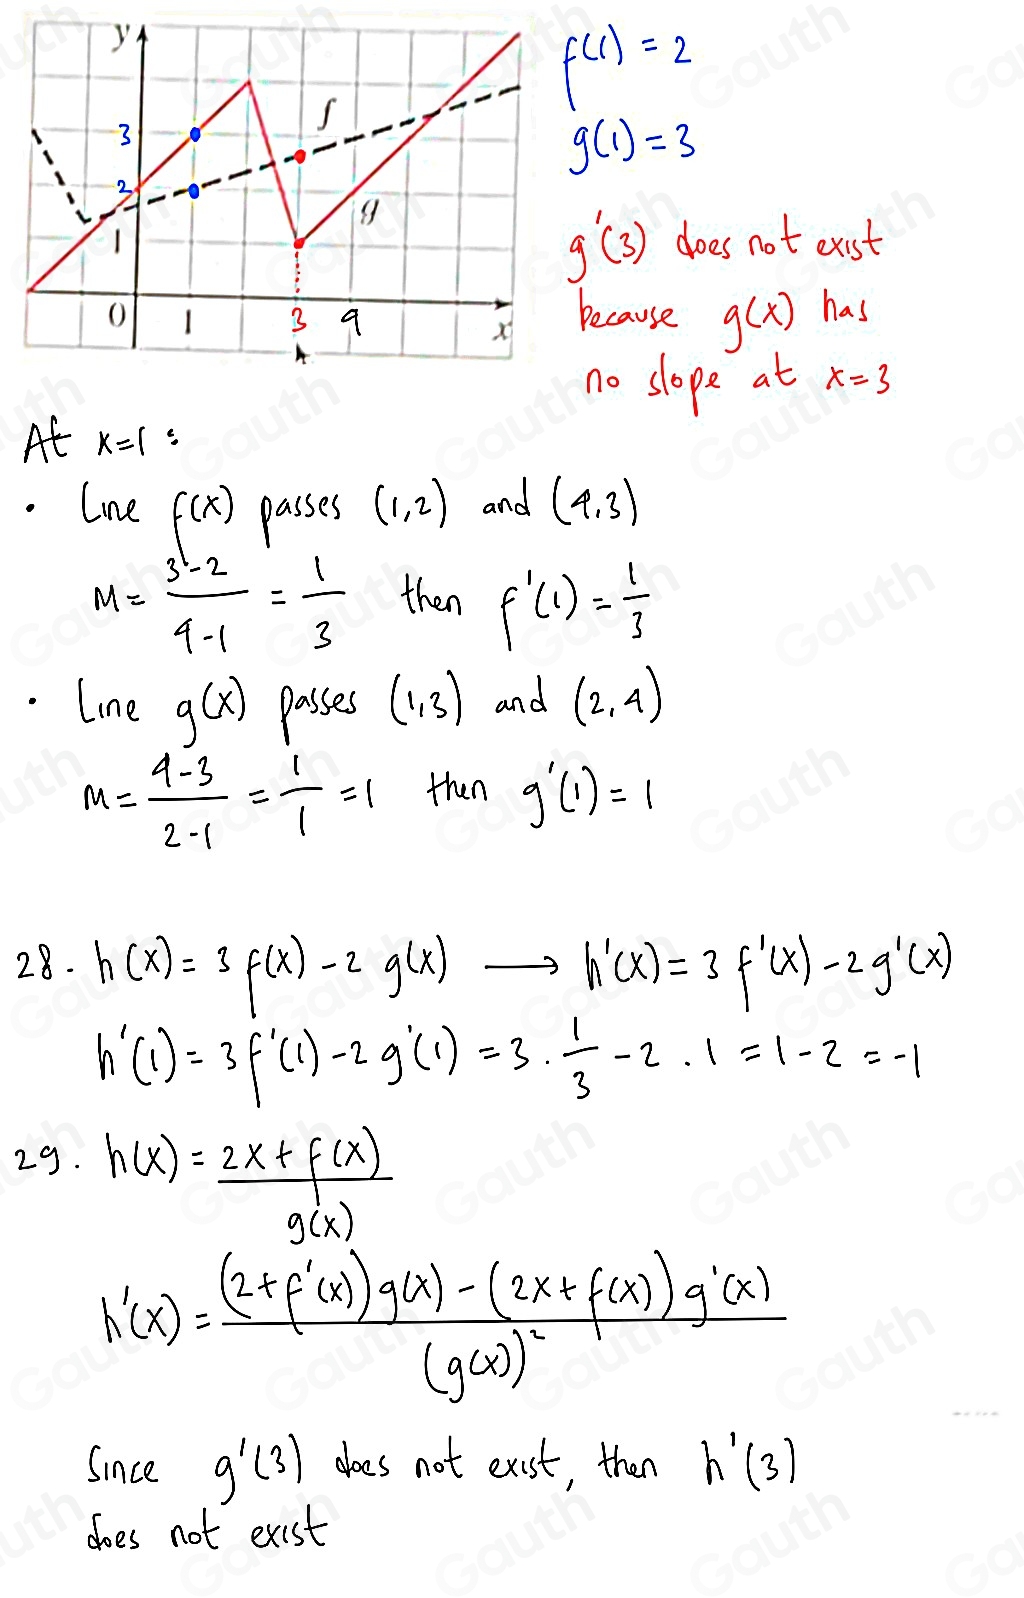 y
f(1) = 2
g(1) = 3
3
2
1
f
g
0 1 3 4 x
g'(3) does not exist
because g(x) has
no slope at x=3
At x=1:
• Line f(x) passes (1,2) and (4,3)
M = 3-2 / 4-1 = 1/3 then f'(1) = 1/3
• Line g(x) passes (1,3) and (2,4)
M = 4-3 / 2-1 = 1/1 = 1 then g'(1) = 1
28. h(x) = 3 f(x) - 2 g(x) → h'(x) = 3 f'(x) - 2 g'(x)
h'(1) = 3 f'(1) - 2 g'(1) = 3 . 1/3 - 2 . 1 = 1 - 2 = -1
29. h(x) = 2x + f(x) / g(x)
h'(x) = (2 + f'(x)) g(x) - (2x + f(x)) g'(x) / (g(x))²
Since g'(3) does not exist, then h'(3)
does not exist
Gauth